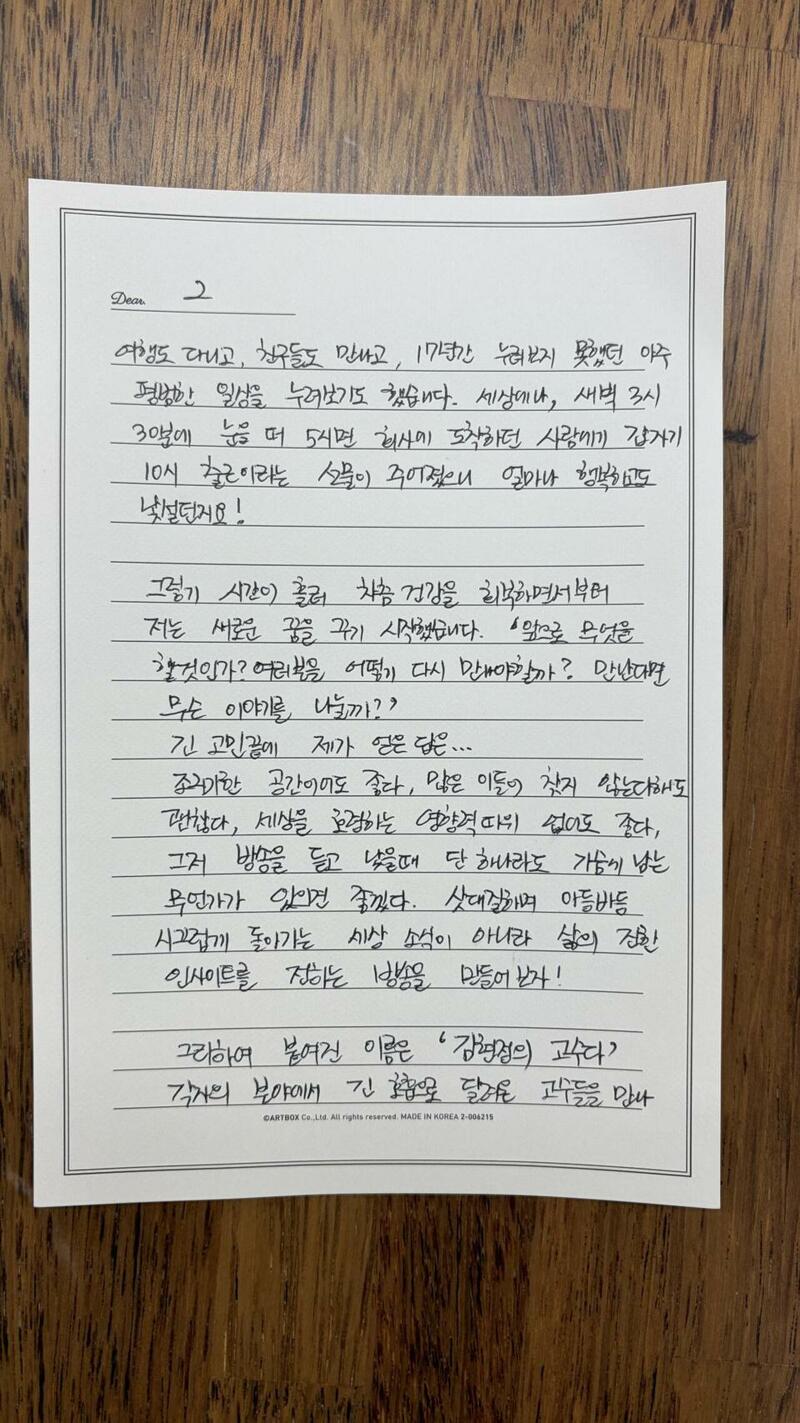 Dear. 2
여행도 다니고, 친구들도 만나고, 17년간 누려보지 못했던 아주
평범한 일상을 누려보기도 했습니다. 세상에나, 새벽 3시
30분에 눈을 떠 5시면 회사에 도착하던 사람에게 갑자기
10시 출근이라는 선물이 주어졌으니 얼마나 행복하고도
낯설던지요!
그렇게 시간이 흘러 차츰 건강을 회복하면서부터
저는 새로운 꿈을 꾸기 시작했습니다. '앞으로 무엇을
할것인가? 여러분을 어떻게 다시 만나야할까? 만난다면
무슨 이야기를 나눌까?'
긴 고민끝에 제가 얻은 답은...
조그마한 공간이어도 좋다, 많은 이들이 찾지 않는다해도
괜찮다, 세상을 호령하는 영향력따위 없어도 좋다,
그저 방송을 듣고 났을때 단 하나라도 가슴에 남는
무언가가 있으면 좋겠다. 삿대질하며 아등바등
시끄럽게 돌아가는 세상 소식이 아니라 삶의 진한
인사이트를 전하는 방송을 만들어보자!
그리하여 붙여진 이름은 '김현정의 고수다'
각자의 분야에서 긴 호흡으로 달려온 고수들을 만나
©ARTBOX Co.,Ltd. All rights reserved. MADE IN KOREA 2-006215